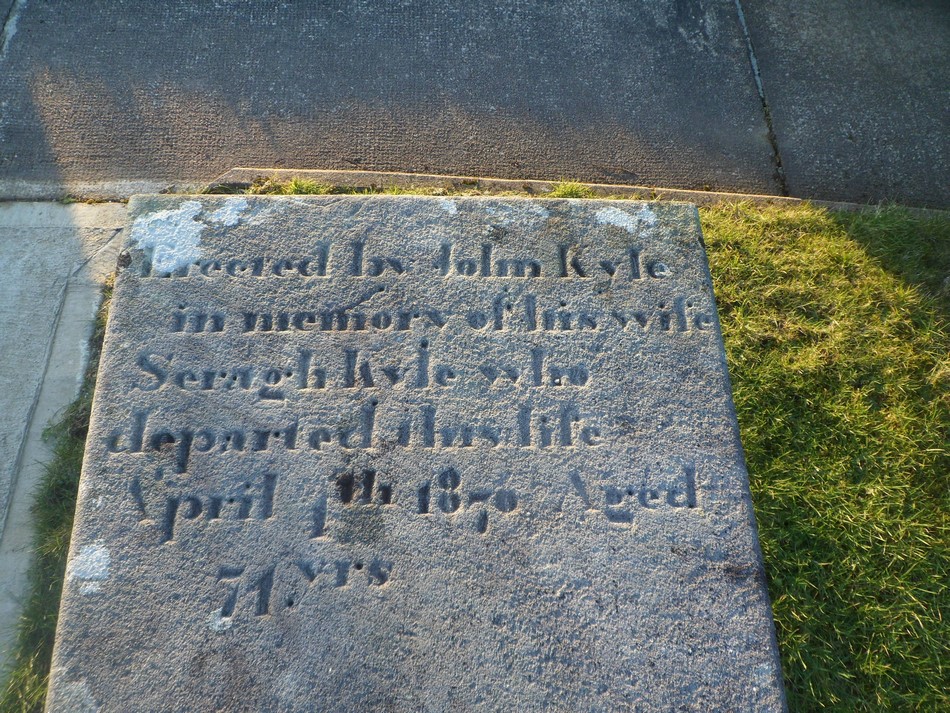 Erected by John Kyle
in memory of his wife
Seragh Kyle who
departed this life
April th 1870 Aged
74 yrs